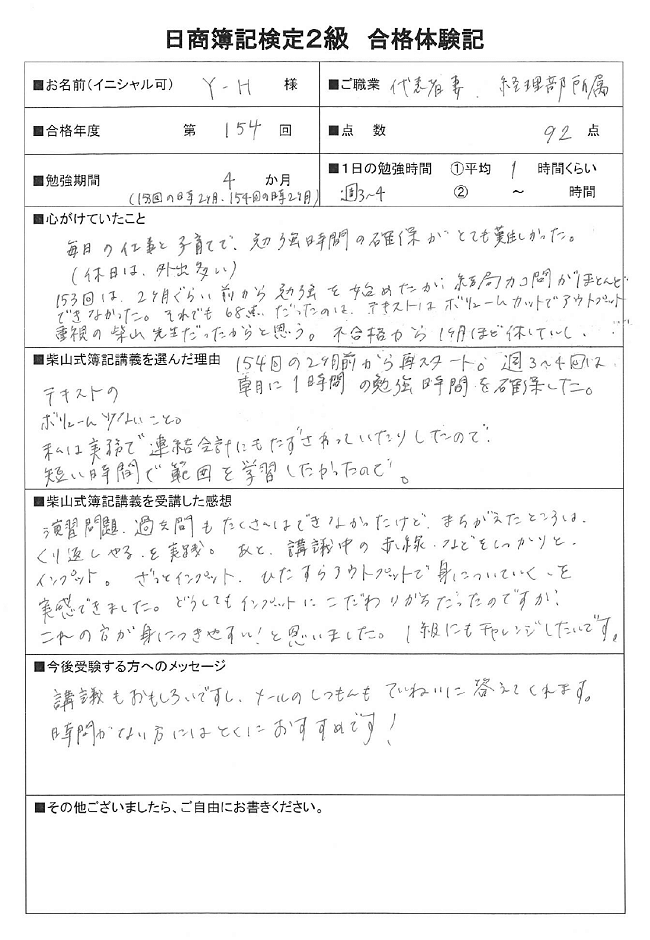 日商簿記検定2級 合格体験記
■お名前(イニシャル可) Y-H 様
■ご職業 代表者妻、経理部所属
■合格年度 第 154 回
■点 数 92 点
■勉強期間 4 か月
(153回の時2ヶ月、154回の時2ヶ月)
■1日の勉強時間 ①平均 1 時間くらい
週3~4 ② ~ 時間
■心がけていたこと
毎日の仕事と子育てで、勉強時間の確保がとても難しかった。
(休日は、外出多い)
153回は、2ヶ月ぐらい前から勉強を始めたが、結局カコ問がほとんど
できなかった。それでも68点だったのは、テキストはボリュームカットでアウトプット
重視の柴山先生だったからと思う。不合格から1ヶ月ほど休んでいし、…
154回の2ヶ月前から再スタート。週3~4回は、
朝に1時間の勉強時間を確保した。
■柴山式簿記講義を選んだ理由
テキストの
ボリューム少ないこと。
私は実務で連結会計にもたずさわっていたりしたので、
短い時間で範囲を学習したかったので。
■柴山式簿記講義を受講した感想
演習問題、過去問もたくさんはできなかったけど、まちがえたところは、
くり返しやる、を実践。あと、講義中の赤線、などをしっかりと、
インプット。ざっとインプット、ひたすらアウトプットで身についていく、を
実感できました。どうしてもインプットにこだわりがちだったのですが、
これの方が身につきやすい!と思いました。1級にもチャレンジしたいです。
■今後受験する方へのメッセージ
講義もおもしろいですし、メールのしつもんもていねいに答えてくれます。
時間がない方にはとくにおすすめです!
■その他ございましたら、ご自由にお書きください。